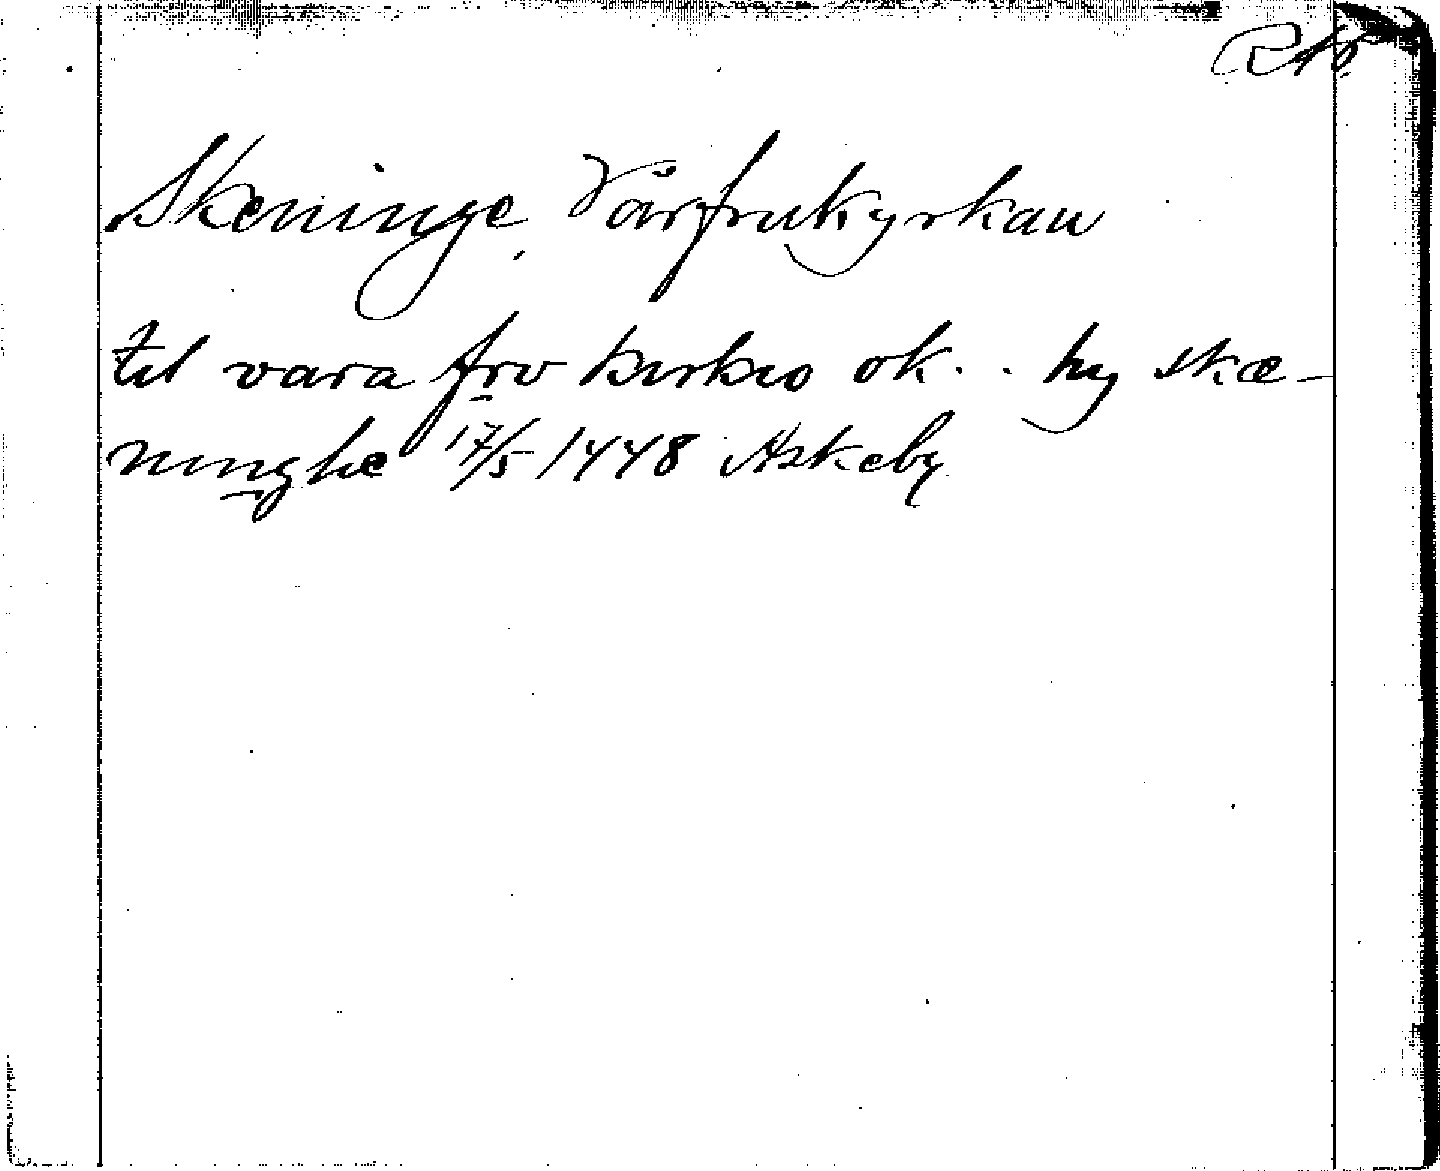 RAp.
Skeninge, Vårfrukyrkan
til vara frv kirkio ok . . hy skæ-
ninghe 17/5 1448 Askeby